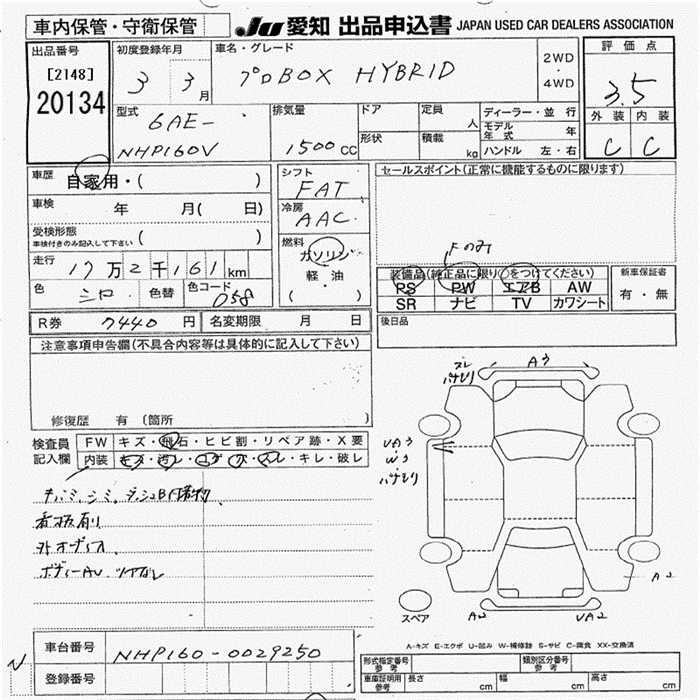 車内保管・守衛保管
JU 愛知 出品申込書 JAPAN USED CAR DEALERS ASSOCIATION
出品番号
[2148]
20134
初度登録年月
3 3月
車名・グレード
プロBOX HYBRID
2WD
・
4WD
評価点
3.5
外装 内装
C C
型式
6AE-
NHP160V
排気量
1500 CC
ドア
形状
定員 人
積載 kg
ディーラー・並行
モデル年式 年
ハンドル 左・右
車歴
自家用・( )
車検 年 月( 日)
受検形態
車検付きのみ記入して下さい ( )
走行
17万2千161km
色 シロ 色替 色コード 058
シフト
FAT
冷房
AAC
燃料
ガソリン
軽・油
( ・ )
セールスポイント(正常に機能するものに限ります)
Fのみ
装備品(純正品に限り○をつけてください)
PS PW エアB AW
SR ナビ TV カワシート
新車保証書
有・無
R券 7440 円 名変期限 月 日
後日品
注意事項申告欄(不具合内容等は具体的に記入して下さい)
修復歴 有 (箇所
検査員
記入欄
FW キズ・飛石・ヒビ割・リペア跡・X要
内装 キズ・汚レ・コゲ・穴・スレ・キレ・破レ
キバミ、シミ、ダッシュB
看板有り
外オーディオ、
ボディーAU ツヤなし
スレ
ハガレ
A3
UA3
W3
A2
A2
UA2
スペア
A-キズ E-エクボ U-凹み W-補修跡 S-サビ C-腐食 XX-交換済
車台番号 NHP160-0029250
登録番号
N
形式指定番号
参考
類別区分番号
参考
車庫証明用
参考
長さ cm 幅 cm 高さ cm